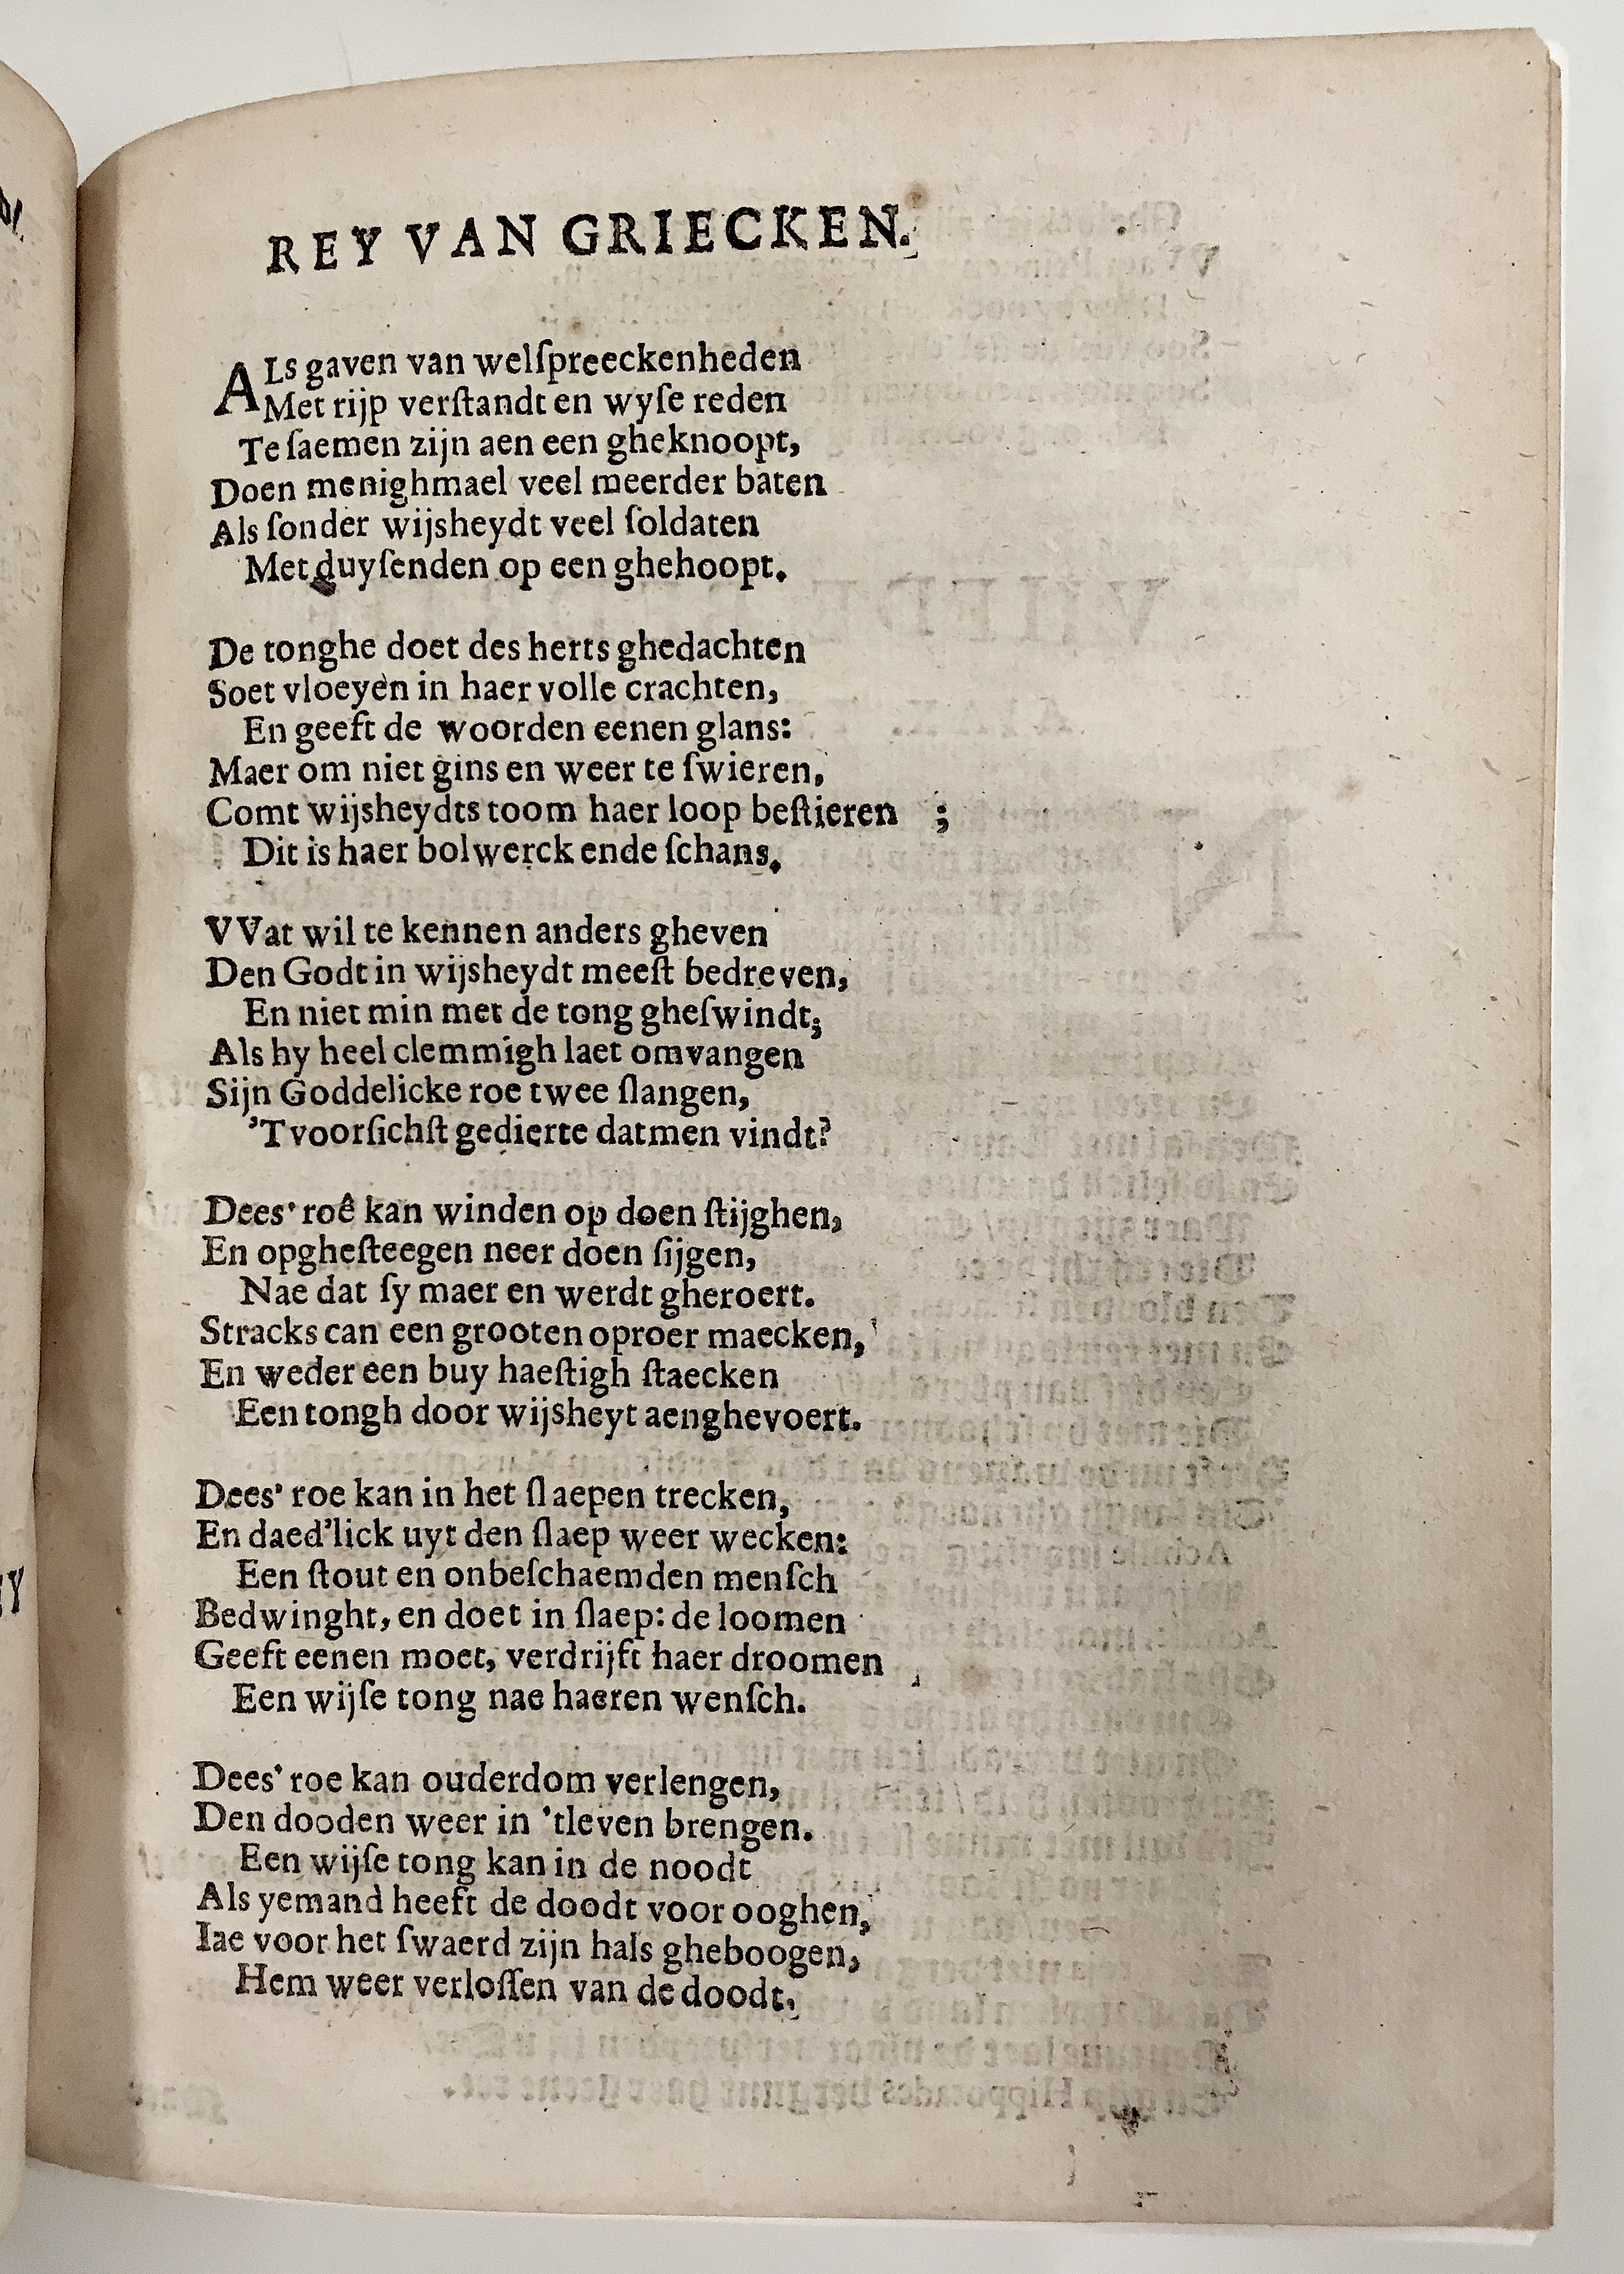 REY VAN GRIECKEN.
ALs gaven van welſpreeckenheden
Met rijp verſtandt en wyſe reden
Te ſaemen zijn aen een gheknoopt,
Doen menighmael veel meerder baten
Als ſonder wijsheydt veel ſoldaten
Met duyſenden op een ghehoopt.
De tonghe doet des herts ghedachten
Soet vloeyen in haer volle crachten,
En geeft de woorden eenen glans:
Maer om niet gins en weer te ſwieren,
Comt wijsheydts toom haer loop beſtieren ;
Dit is haer bolwerck ende ſchans.
VVat wil te kennen anders gheven
Den Godt in wijsheydt meeſt bedreven,
En niet min met de tong gheſwindt;
Als hy heel clemmigh laet omvangen
Sijn Goddelicke roe twee ſlangen,
'T voorſichſt gedierte datmen vindt?
Dees' roê kan winden op doen ſtijghen,
En opgheſteegen neer doen ſijgen,
Nae dat ſy maer en werdt gheroert.
Stracks can een grooten oproer maecken,
En weder een buy haeſtigh ſtaecken
Een tongh door wijsheyt aenghevoert.
Dees' roe kan in het ſlaepen trecken,
En daed'lick uyt den ſlaep weer wecken:
Een ſtout en onbeſchaemden menſch
Bedwinght, en doet in ſlaep: de loomen
Geeft eenen moet, verdrijft haer droomen
Een wijſe tong nae haeren wenſch.
Dees' roe kan ouderdom verlengen,
Den dooden weer in 'tleven brengen.
Een wijſe tong kan in de noodt
Als yemand heeft de doodt voor ooghen,
Iae voor het ſwaerd zijn hals gheboogen,
Hem weer verloſſen van de doodt.